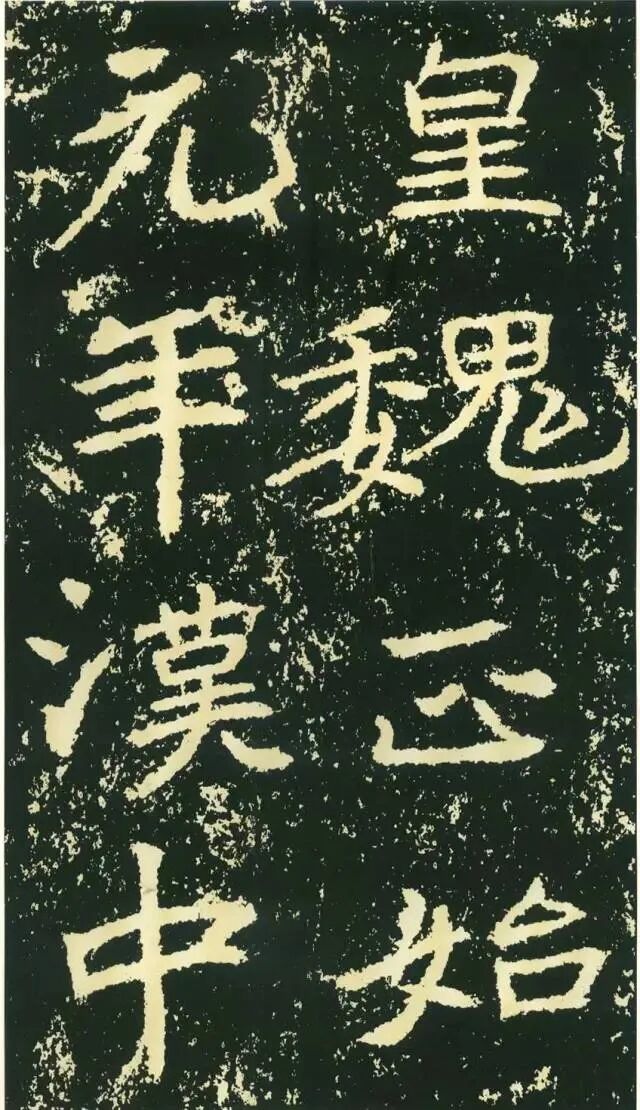 皇魏正始
元年漢中